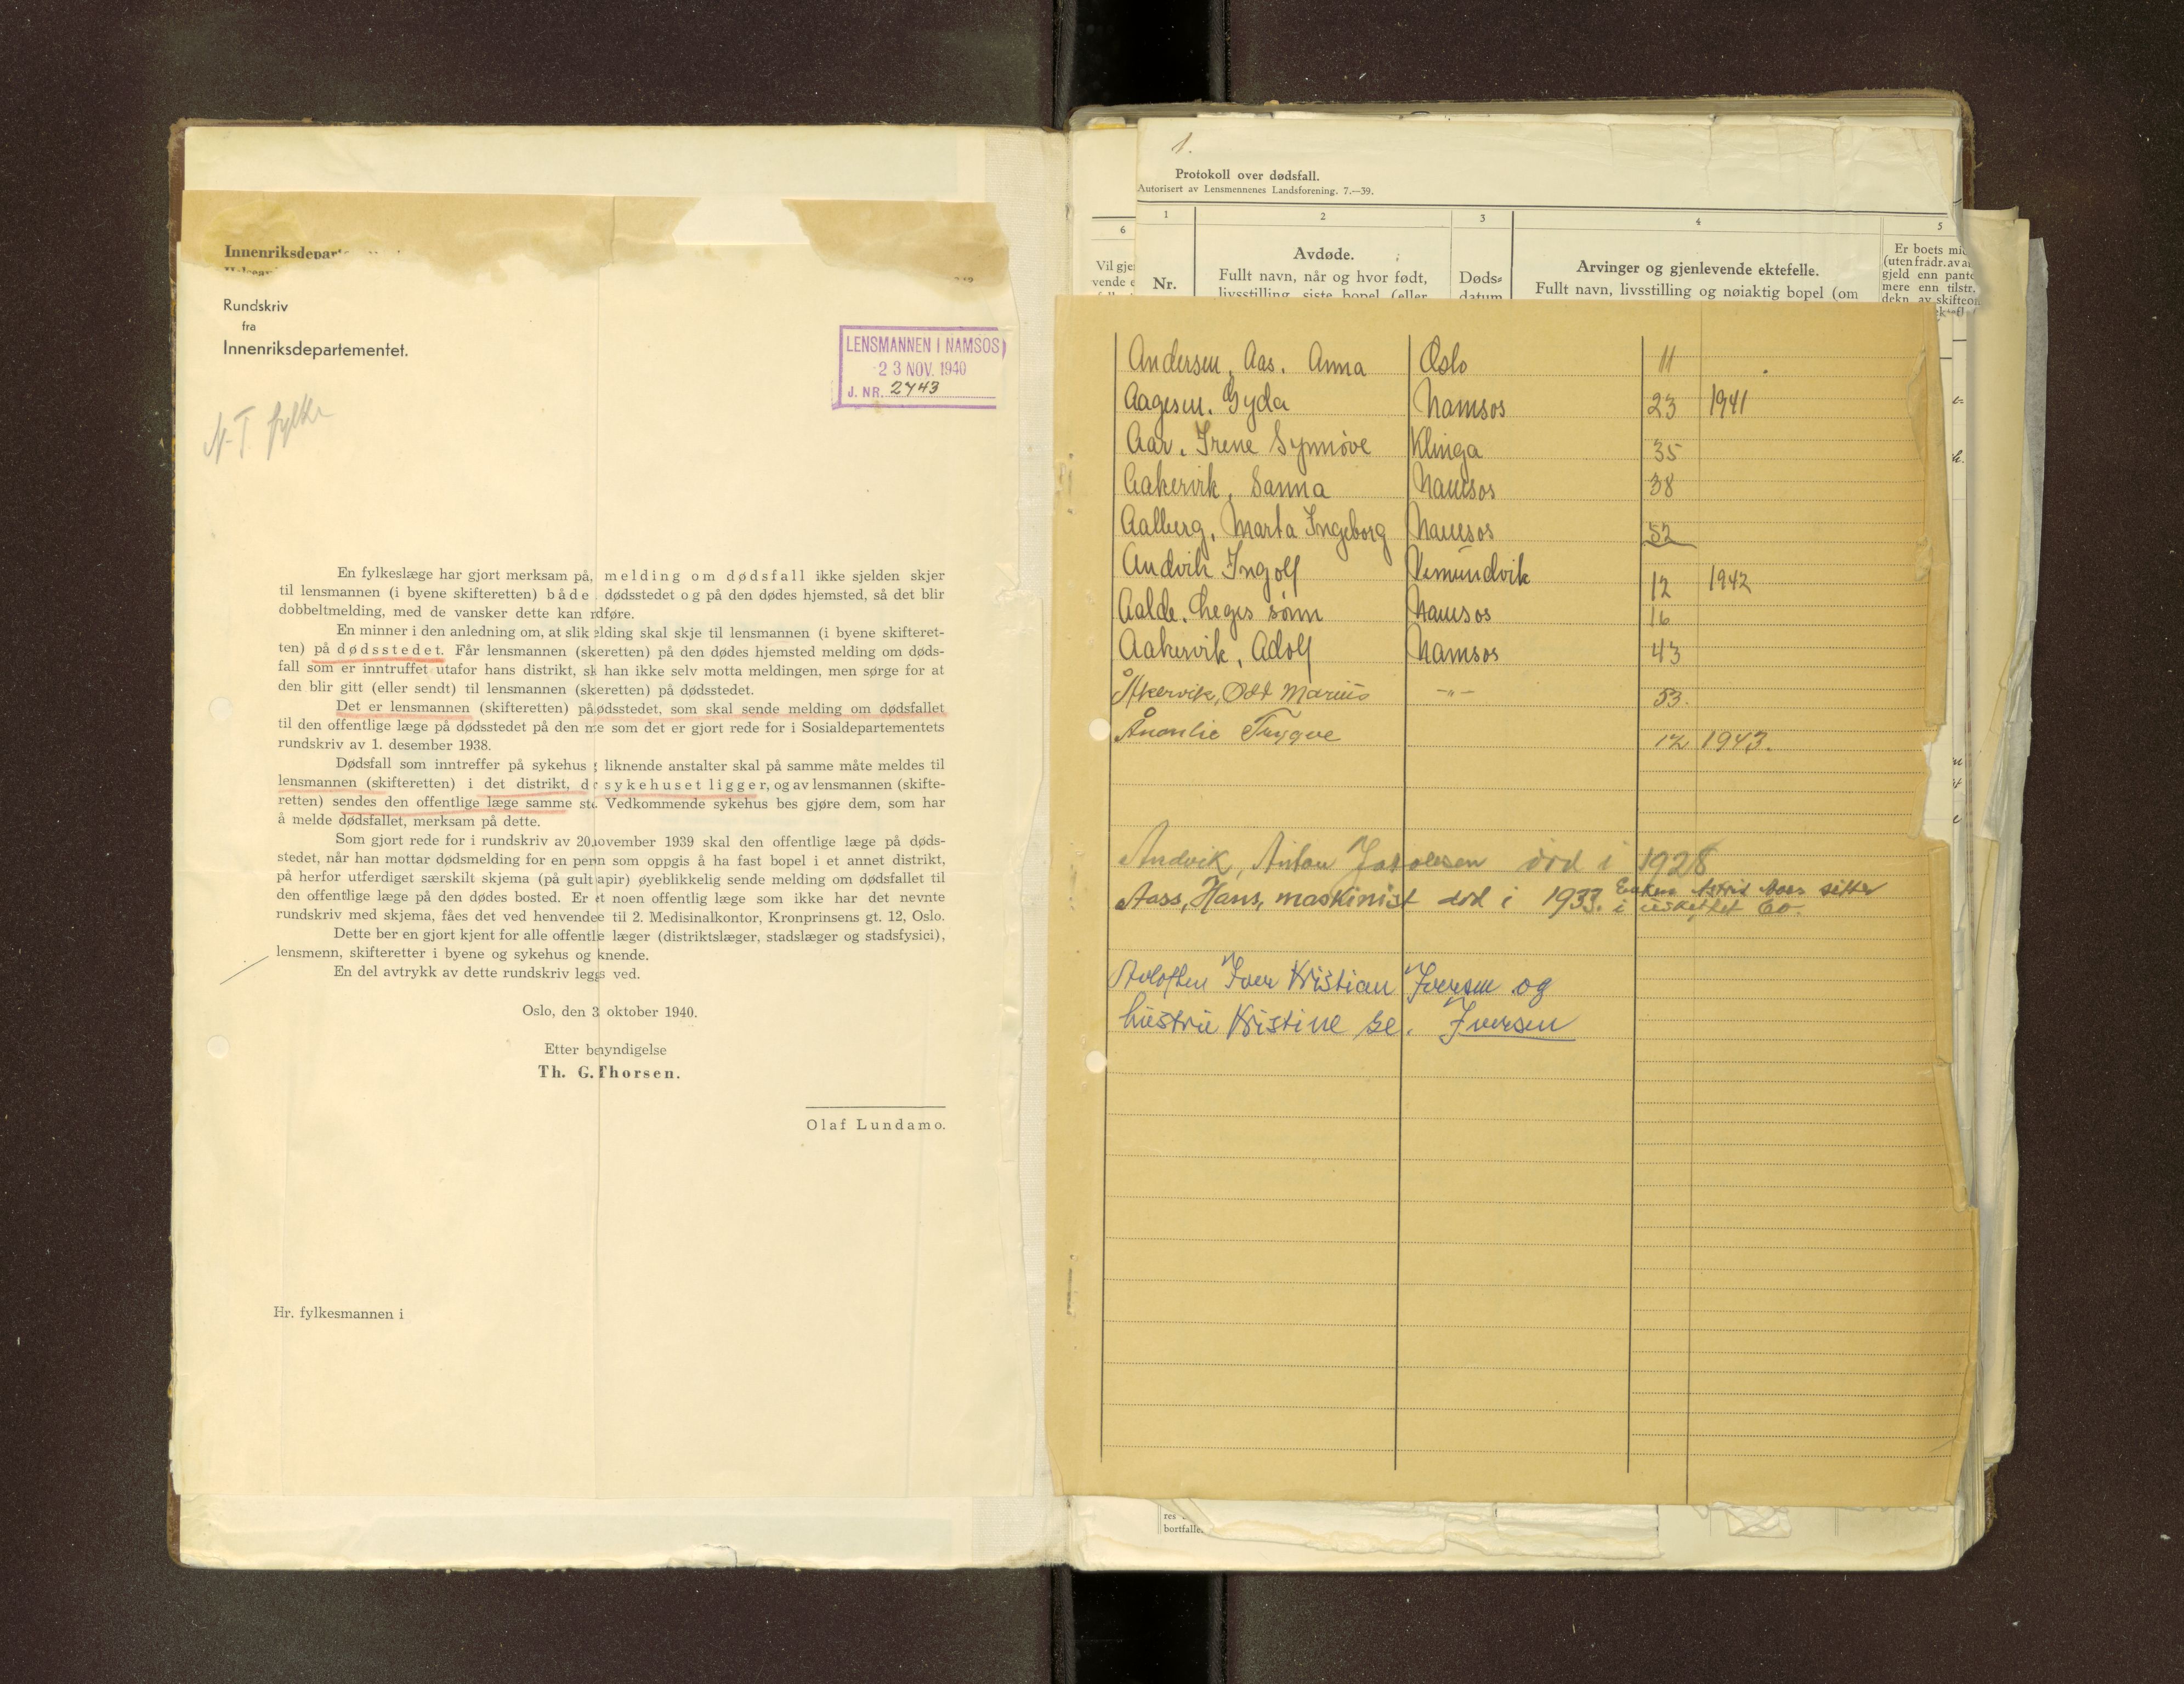 Innenriksdepart
Rundskriv
fra
Innenriksdepartementet.
LENSMANNEN I NAMSOS
23 NOV. 1940
J. NR. 2743
N-T. fylke
En fylkeslæge har gjort merksam på, melding om dødsfall ikke sjelden skjer
til lensmannen (i byene skifteretten) både dødsstedet og på den dødes hjemsted, så det blir
dobbeltmelding, med de vansker dette kan dføre.
En minner i den anledning om, at slik elding skal skje til lensmannen (i byene skifteret-
ten) på dødsstedet. Får lensmannen (skeretten) på den dødes hjemsted melding om døds-
fall som er inntruffet utafor hans distrikt, sk han ikke selv motta meldingen, men sørge for at
den blir gitt (eller sendt) til lensmannen (skeretten) på dødsstedet.
Det er lensmannen (skifteretten) på ødsstedet, som skal sende melding om dødsfallet
til den offentlige læge på dødsstedet på den me som det er gjort rede for i Sosialdepartementets
rundskriv av 1. desember 1938.
Dødsfall som inntreffer på sykehus liknende anstalter skal på samme måte meldes til
lensmannen (skifteretten) i det distrikt, d sykehuset ligger, og av lensmannen (skifte-
retten) sendes den offentlige læge samme ste. Vedkommende sykehus bes gjøre dem, som har
å melde dødsfallet, merksam på dette.
Som gjort rede for i rundskriv av 20 november 1939 skal den offentlige læge på døds-
stedet, når han mottar dødsmelding for en pern som oppgis å ha fast bopel i et annet distrikt,
på herfor utferdiget særskilt skjema (på gult apir) øyeblikkelig sende melding om dødsfallet til
den offentlige læge på den dødes bosted. Er et noen offentlig læge som ikke har det nevnte
rundskriv med skjema, fåes det ved henvendee til 2. Medisinalkontor, Kronprinsens gt. 12, Oslo.
Dette ber en gjort kjent for alle offentle læger (distriktslæger, stadslæger og stadsfysici),
lensmenn, skifteretter i byene og sykehus og knende.
En del avtrykk av dette rundskriv leggs ved.
Oslo, den 3 oktober 1940.
Etter bmyndigelse
Th. G. Thorsen.
Olaf Lundamo.
Hr. fylkesmannen i
1.
Protokoll over dødsfall.
Autorisert av Lensmennenes Landsforening. 7.—39.
6 1 2 3 4 5
Vil gje
vende e
Nr.
Avdøde.
Fullt navn, når og hvor født,
livsstilling, siste bopel (eller
Døds-
datum
Arvinger og gjenlevende ektefelle.
Fullt navn, livsstilling og nøiaktig bopel (om
Er boets mi
(uten fradr. av a
gjeld enn pante
mere enn tilstr.
dekn. av skifteo
Andersen, Aas. Anna Oslo 11
Aagesen. Gyda Namsos 23 1941
Aar. Irene Synnøve Klinga 35
Aakervik, Sanna Namsos 38
Aalberg, Marta Ingeborg Namsos 52
Andvik Ingolf Vemundvik 12 1942
Aalde. Leges sønn Namsos 16
Aakervik, Adolf Namsos 43
Åkervik, Odd Marius -"- 53.
Ånonlie Trygve 12 1943.
Andvik, Anton Jakobsen død i 1928
Aass, Hans, maskinist død i 1933. Enken Astrid Aas sitter
i uskiftet bo.
Avloften Iver Kristian Iversen og
hustru Kristine Iversen
res
bortfalle